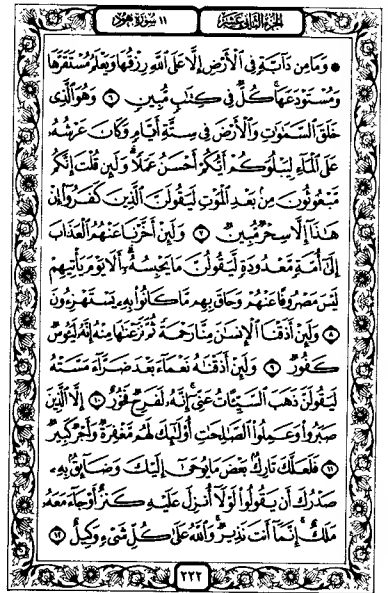 الجزء الثاني عشر ١١ سورة هود
۞ وَمَا مِن دَآبَّةٍ فِى ٱلْأَرْضِ إِلَّا عَلَى ٱللَّهِ رِزْقُهَا وَيَعْلَمُ مُسْتَقَرَّهَا
وَمُسْتَوْدَعَهَا ۚ كُلٌّ فِى كِتَٰبٍ مُّبِينٍ ٦ وَهُوَ ٱلَّذِى
خَلَقَ ٱلسَّمَٰوَٰتِ وَٱلْأَرْضَ فِى سِتَّةِ أَيَّامٍ وَكَانَ عَرْشُهُۥ
عَلَى ٱلْمَآءِ لِيَبْلُوَكُمْ أَيُّكُمْ أَحْسَنُ عَمَلًا ۗ وَلَئِن قُلْتَ إِنَّكُم
مَّبْعُوثُونَ مِنۢ بَعْدِ ٱلْمَوْتِ لَيَقُولَنَّ ٱلَّذِينَ كَفَرُوٓا۟ إِنْ
هَٰذَآ إِلَّا سِحْرٌ مُّبِينٌ ٧ وَلَئِنْ أَخَّرْنَا عَنْهُمُ ٱلْعَذَابَ
إِلَىٰٓ أُمَّةٍ مَّعْدُودَةٍ لَّيَقُولُنَّ مَا يَحْبِسُهُۥٓ ۗ أَلَا يَوْمَ يَأْتِيهِمْ
لَيْسَ مَصْرُوفًا عَنْهُمْ وَحَاقَ بِهِم مَّا كَانُوا۟ بِهِۦ يَسْتَهْزِءُونَ
٨ وَلَئِنْ أَذَقْنَا ٱلْإِنسَٰنَ مِنَّا رَحْمَةً ثُمَّ نَزَعْنَٰهَا مِنْهُ إِنَّهُۥ لَيَـُٔوسٌ
كَفُورٌ ٩ وَلَئِنْ أَذَقْنَٰهُ نَعْمَآءَ بَعْدَ ضَرَّآءَ مَسَّتْهُ
لَيَقُولَنَّ ذَهَبَ ٱلسَّيِّـَٔاتُ عَنِّىٓ ۚ إِنَّهُۥ لَفَرِحٌ فَخُورٌ ١٠ إِلَّا ٱلَّذِينَ
صَبَرُوا۟ وَعَمِلُوا۟ ٱلصَّٰلِحَٰتِ أُو۟لَٰٓئِكَ لَهُم مَّغْفِرَةٌ وَأَجْرٌ كَبِيرٌ
١١ فَلَعَلَّكَ تَارِكٌۢ بَعْضَ مَا يُوحَىٰٓ إِلَيْكَ وَضَآئِقٌۢ بِهِۦ
صَدْرُكَ أَن يَقُولُوا۟ لَوْلَآ أُنزِلَ عَلَيْهِ كَنزٌ أَوْ جَآءَ مَعَهُۥ
مَلَكٌ ۚ إِنَّمَآ أَنتَ نَذِيرٌ ۚ وَٱللَّهُ عَلَىٰ كُلِّ شَىْءٍ وَكِيلٌ ١٢
٢٢٢